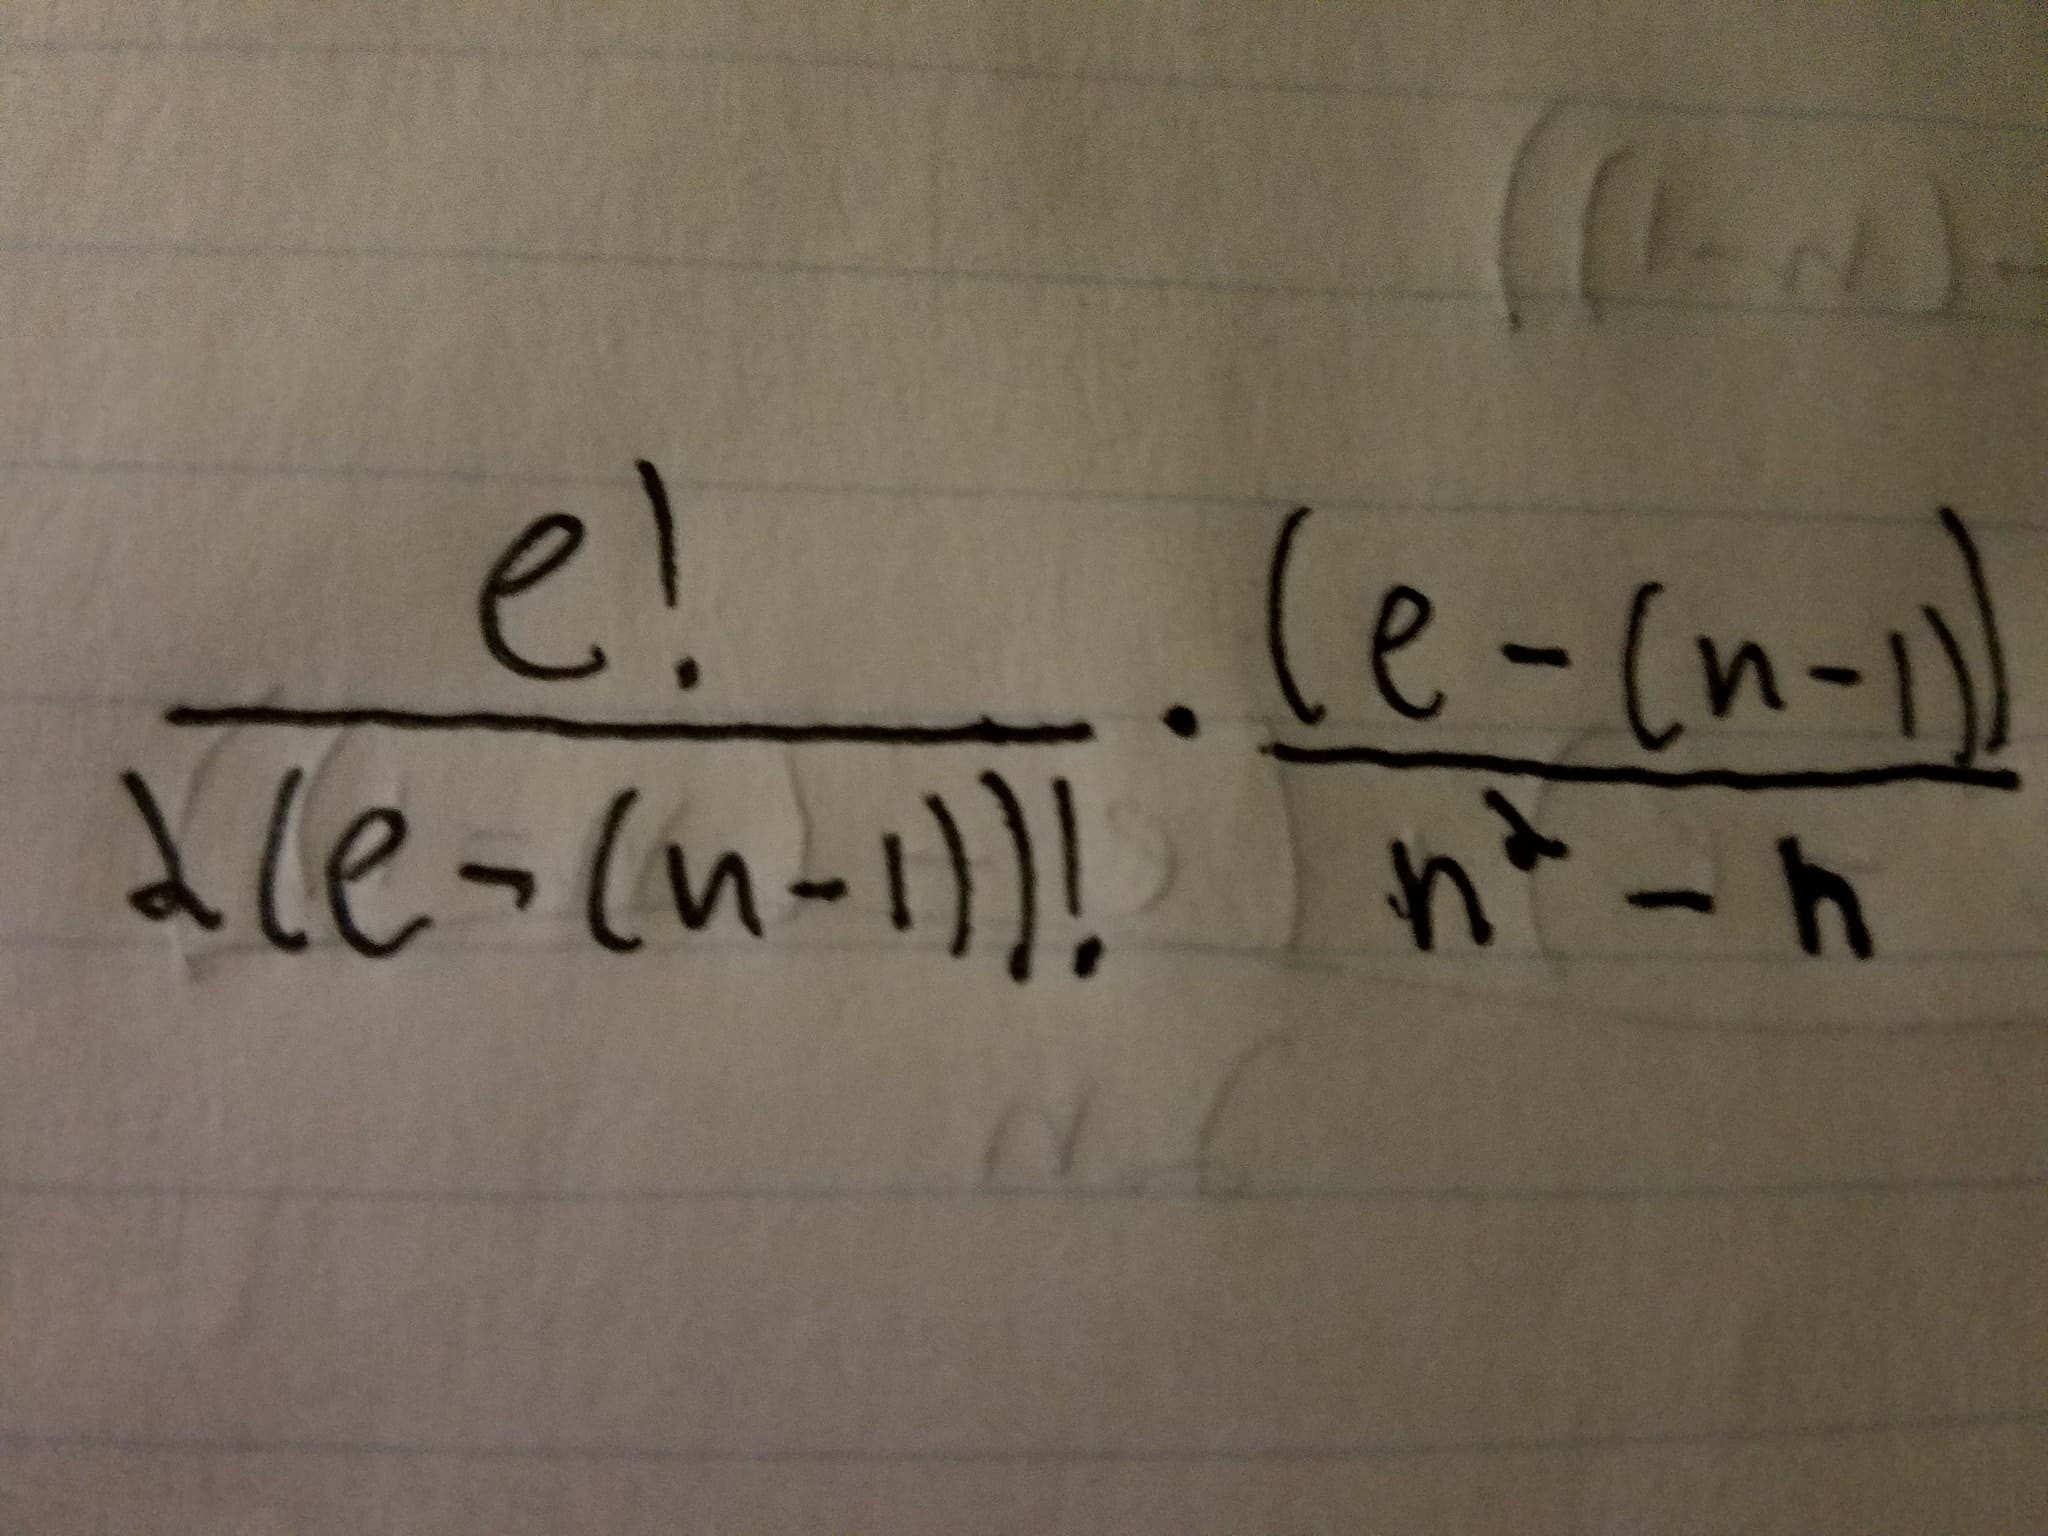 e! / 2(e-(n-1))! · (e-(n-1)) / n² - n